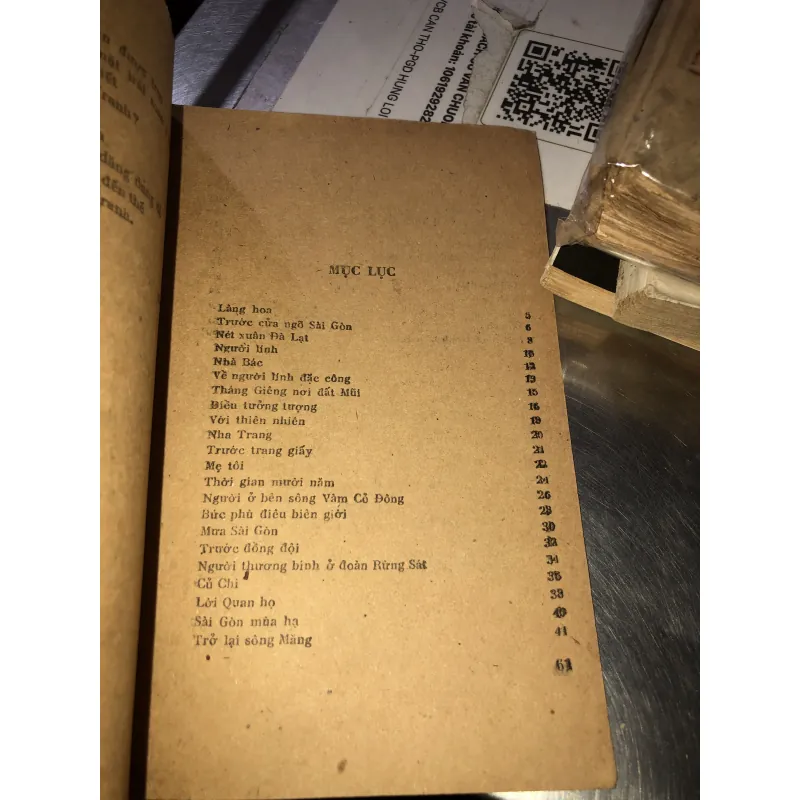 MỤC LỤC
Làng hoa 5
Trước cửa ngõ Sài Gòn 6
Nét xuân Đà Lạt 8
Người lính 10
Nhà Bác 12
Về người lính đặc công 13
Tháng Giêng nơi đất Mũi 15
Điều tưởng tượng 16
Với thiên nhiên 19
Nha Trang 20
Trước trang giấy 21
Mẹ tôi 22
Thời gian mười năm 24
Người ở bên sông Vàm Cỏ Đông 26
Bức phù điêu biên giới 28
Mưa Sài Gòn 30
Trước đồng đội
Người thương binh ở đoàn Rừng Sát 34
Củ Chi
Lời Quan họ
Sài Gòn mùa hạ
Trở lại sông Măng 41
61
ranh?
đến thế
ranh.
VCB CAN THO-PGD HUNG LOI
tài khoản: 1061929282
VAN CHUO